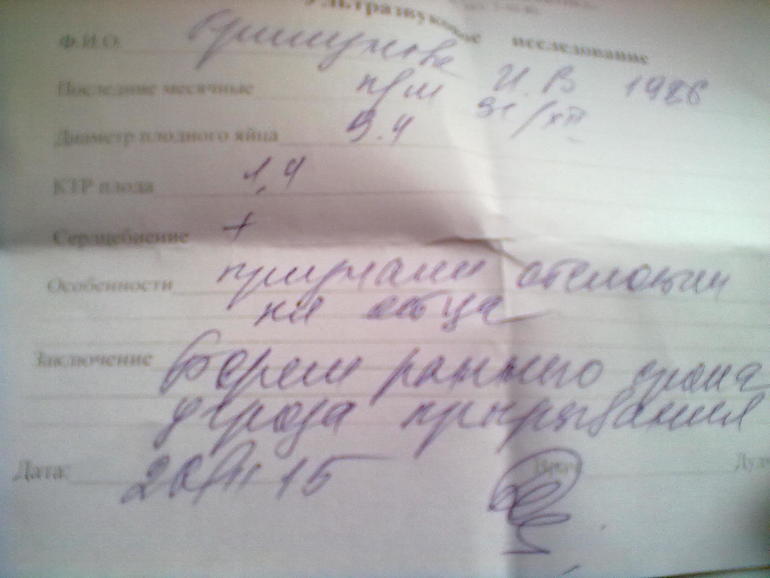 Ультразвуковое исследование
Ф.И.О. И.В 1986
Последние месячные 31/XII
Диаметр плодного яйца 3.4
КТР плода 1,4
Сердцебиение +
Особенности признаки отслойки
пл яйца
Заключение Берем раннего срока
угроза прерывания
Дата: 20/II 15 Врач